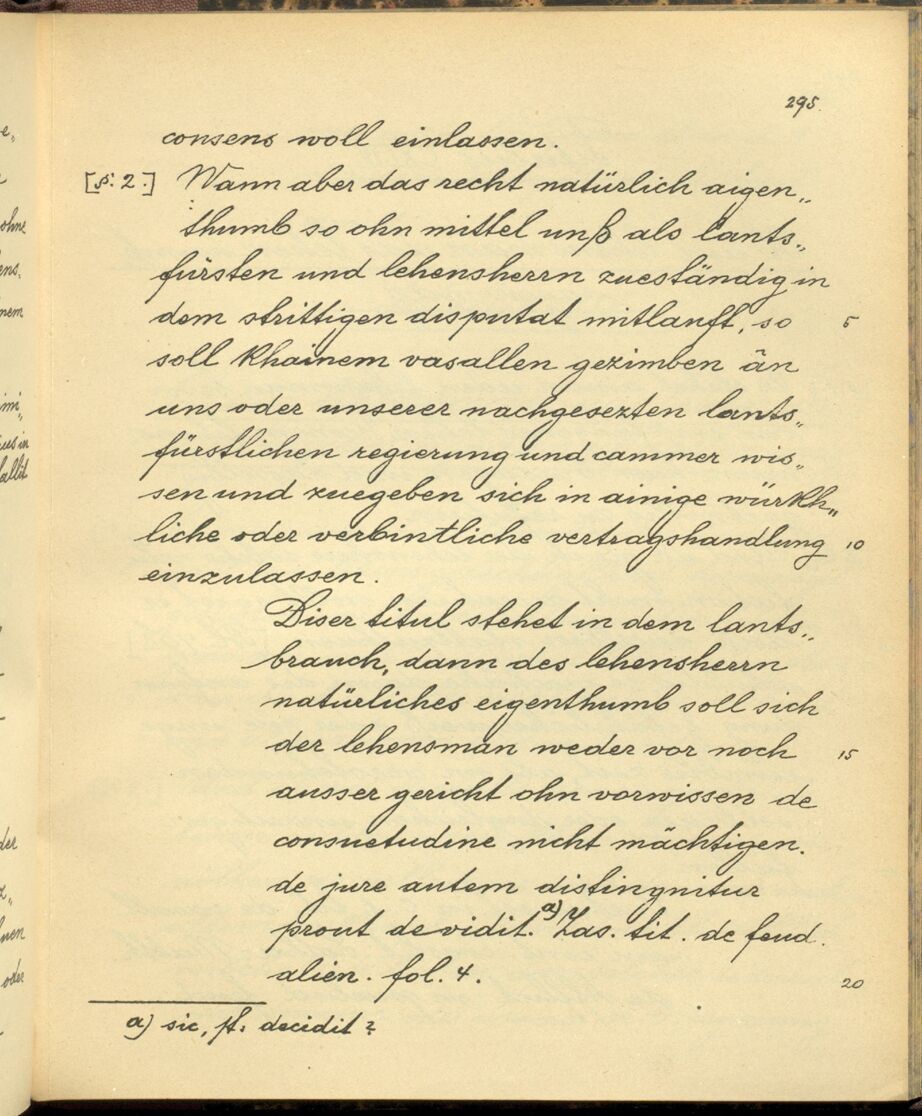 295.
consens woll einlassen.
[§: 2.] Wann aber das recht natürlich aigen„
thumb so ohn mittel unß als lants„
fürsten und lehensherrn zueständig in
dem strittigen disputat mitlauft, so 5
soll khainem vasallen gezimben än
uns oder unserer nachgesezten lants„
fürstlichen regierung und cammer wis„
sen und zuegeben sich in ainige würkh„
liche oder verbintliche vertragshandlung 10
einzulassen.
Diser titul stehet in dem lants„
brauch, dann des lehensherrn
natürliches eigenthumb soll sich
der lehensman weder vor noch 15
ausser gericht ohn vorwissen de
consuetudine nicht mächtigen.
de jure autem distingnitur
prout de vidit. a) Zas. tit. de feud.
alien. fol. 4. 20
a) sic, st: decidit?